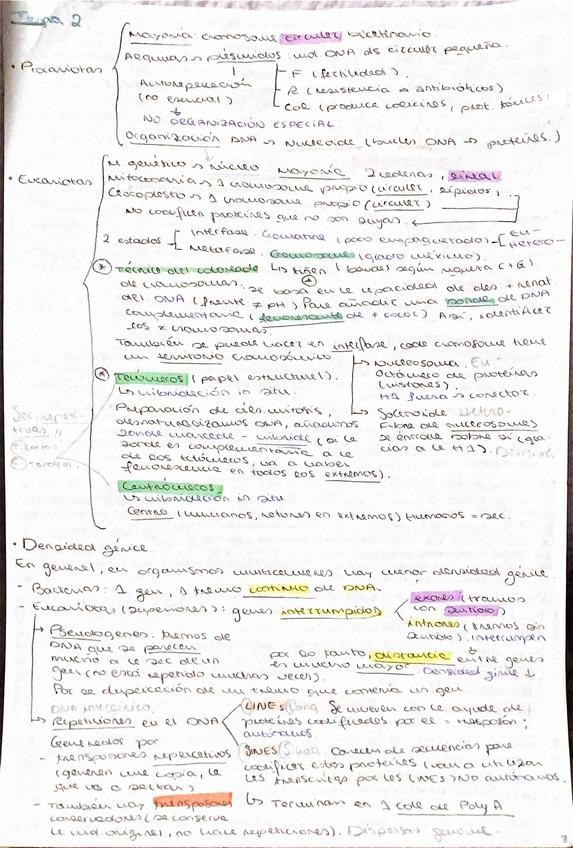 Tema 2
· Procariotas
Mayoría: cromosoma circular bicatenario.
Algunas → plásmidos: mol DNA ds circular pequeña.
Autorreplicación
(no esencial)
F (fertilidad).
R (resistencia a antibióticos)
Col (produce colicinas, prot. tóxicas)
NO ORGANIZACIÓN ESPECIAL.
Organización DNA → Nucleoide (bucles DNA → proteínas.)
· Eucariotas
M. genético → núcleo. Mayoría 2 cadenas, lineal
Mitocondria → 1 cromosoma propio (circular,
Cloroplasto → 1 cromosoma propio (circular)
No codifican proteínas que no son suyas.
2 estados
Interfase. Cromatina (poco empaquetado)
Eu-
Hetero-
Metafase. Cromosoma (grado máximo).
* Técnica del coloreado
de cromosomas.
↳ tiñen (bandas) según riqueza C+G.
Se basa en la capacidad de des + renat
del DNA (frente ≠ pH) Para añadir una sonda de DNA
complementaria (fluorescente de + color) Así, identificar
los ≠ cromosomas.
También se puede hacer en interfase, cada cromosoma tiene
un territorio cromosómico
Nucleosoma. Eu-
Octámero de proteínas
(histonas).
H1 fuera → conector.
Solenoide Hetero-
Fibra de nucleosomas
se enrolla sobre sí (gra-
cias a la H1).
* Telómeros (papel estructural).
↳ hibridación in situ.
Preparación de céls. mitosis,
desnaturalizamos DNA, añadimos
sonda marcada - híbrida (si la
sonda es complementaria a la
de los telómeros, va a haber
fluorescencia en todos los extremos).
Sec. repeti-
tivas
Centrómeros
↳ hibridación in situ
Centro (humanos, ratones en extremos) Humanos = sec.
· Densidad génica.
En general, en organismos multicelulares hay menor densidad génica.
- Bacterias: 1 gen, 1 tramo continuo de DNA.
- Eucariotas (superiores): genes interrumpidos
exones (tramos
con sentido)
intrones (tramos sin
sentido). Interrumpen
Pseudogenes. tramos de
DNA que se parecen
mucho a la sec de un
gen (no está repetido muchas veces).
por lo tanto, distancia entre genes
es mucho mayor
Densidad génica ↓
Por se duplicación de un tramo que contenía un gen.
DNA intergénico.
Repeticiones en el DNA
Generados por
- transposones replicativos
(generan una copia, la
que va a saltar)
LINES (long Se mueven con la ayuda de
proteínas codificadas por el transposón;
autónomos.
SINES (short Carecen de secuencias para
codificar estas proteínas (van a utilizar
las transcritas por las LINES) No autónomos.
↳ Terminan en 1 cola de Poly A
- También hay transposones
conservadores (se conserva
la mol. original, no hace repeticiones). Dispersas genoma.